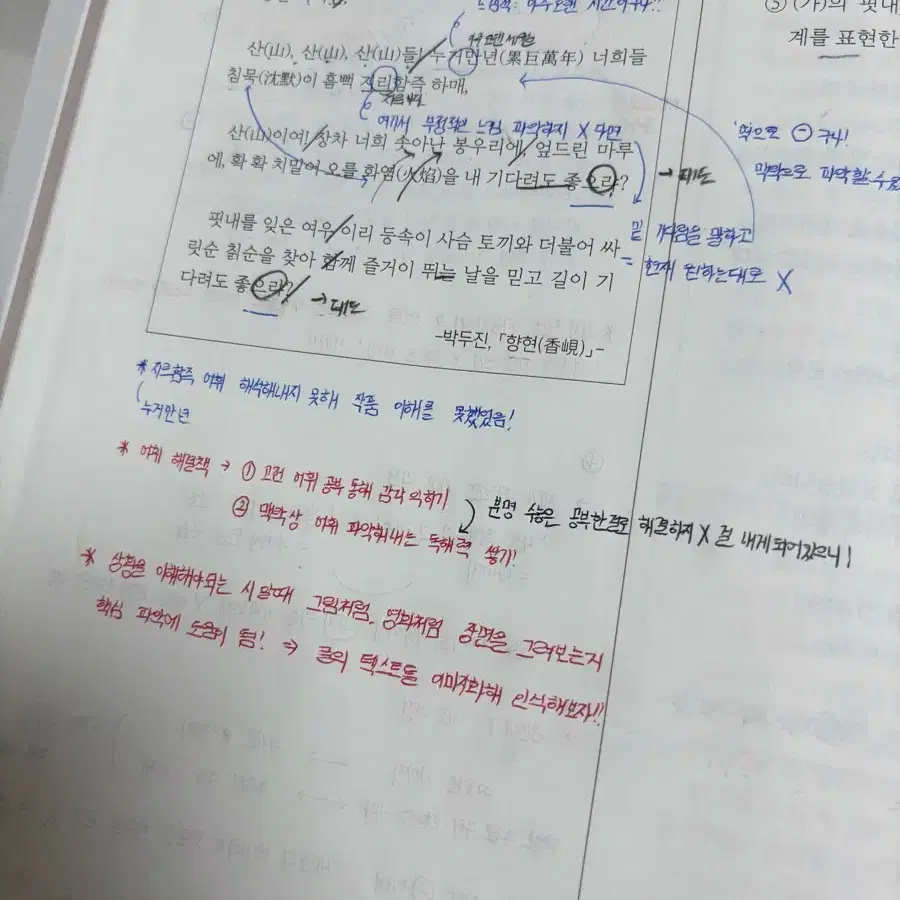 느낌적: 아주 오랜 시간이구나!!
아주 오랜 세월
산(山), 산(山), 산(山)들! 누거만년(累巨萬年) 너희들
침묵(沈默)이 흠뻑 지리함즉 하매,
지루하다
예서 부정적인 느낌 파악하지 X 다면
산(山)이여! 장차 너희 솟아난 봉우리에, 엎드린 마루
에, 확 확 치밀어 오를 화염(火焰)을 내 기다려도 좋으랴?
→ 태도
핏내를 잊은 여우 이리 등속이 사슴 토끼와 더불어 싸
릿순 칡순을 찾아 함께 즐거이 뛰는 날을 믿고 길이 기
다려도 좋으랴?
→ 태도
-박두진, 「향현(香峴)」-
⑤ (가)의 핏내
계를 표현한
⊖ 구나!
맥락으로 파악할 수
및 기다림을 말하고
= 현재 원하는대로 X
* 지리함즉 어휘 해석해내지 못해 작품 이해를 못했었음!
누거만년
* 어휘 해결책 → ① 고전 어휘 공부 통해 감각 익히기
② 맥락상 어휘 파악해내는 독해력 쌓기!
분명 수능은 공부한걸로 해결하지 X 걸 내게 되어있으니!
* 상황을 이해해야되는 시 일때 그림처럼, 영화처럼 장면을 그려보는게
핵심 파악에 도움이 됨! ⇒ 글의 텍스트를 이미지화해 인식해보자!!